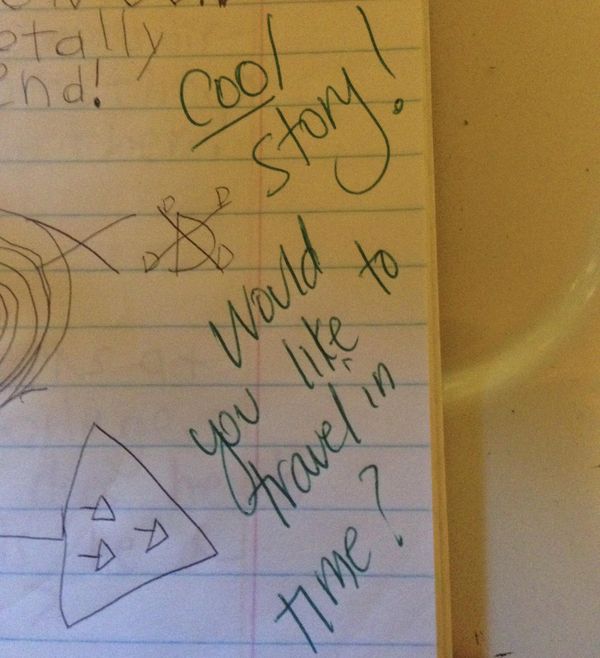 otally
end!
cool
story!
Would
you like to
travel in
time?
D D
D D